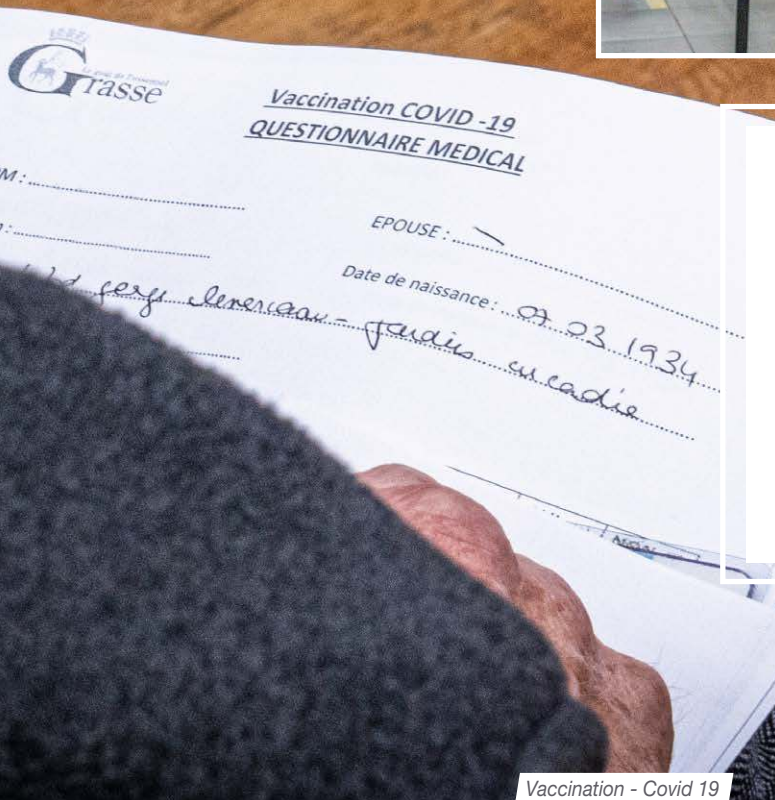 Le pays de l'essentiel
Grasse
Vaccination COVID -19
QUESTIONNAIRE MEDICAL
M :
EPOUSE :
:
Date de naissance : 07 03 1934
Bd george clemenceau - jardins arcadie
Vaccination - Covid 19